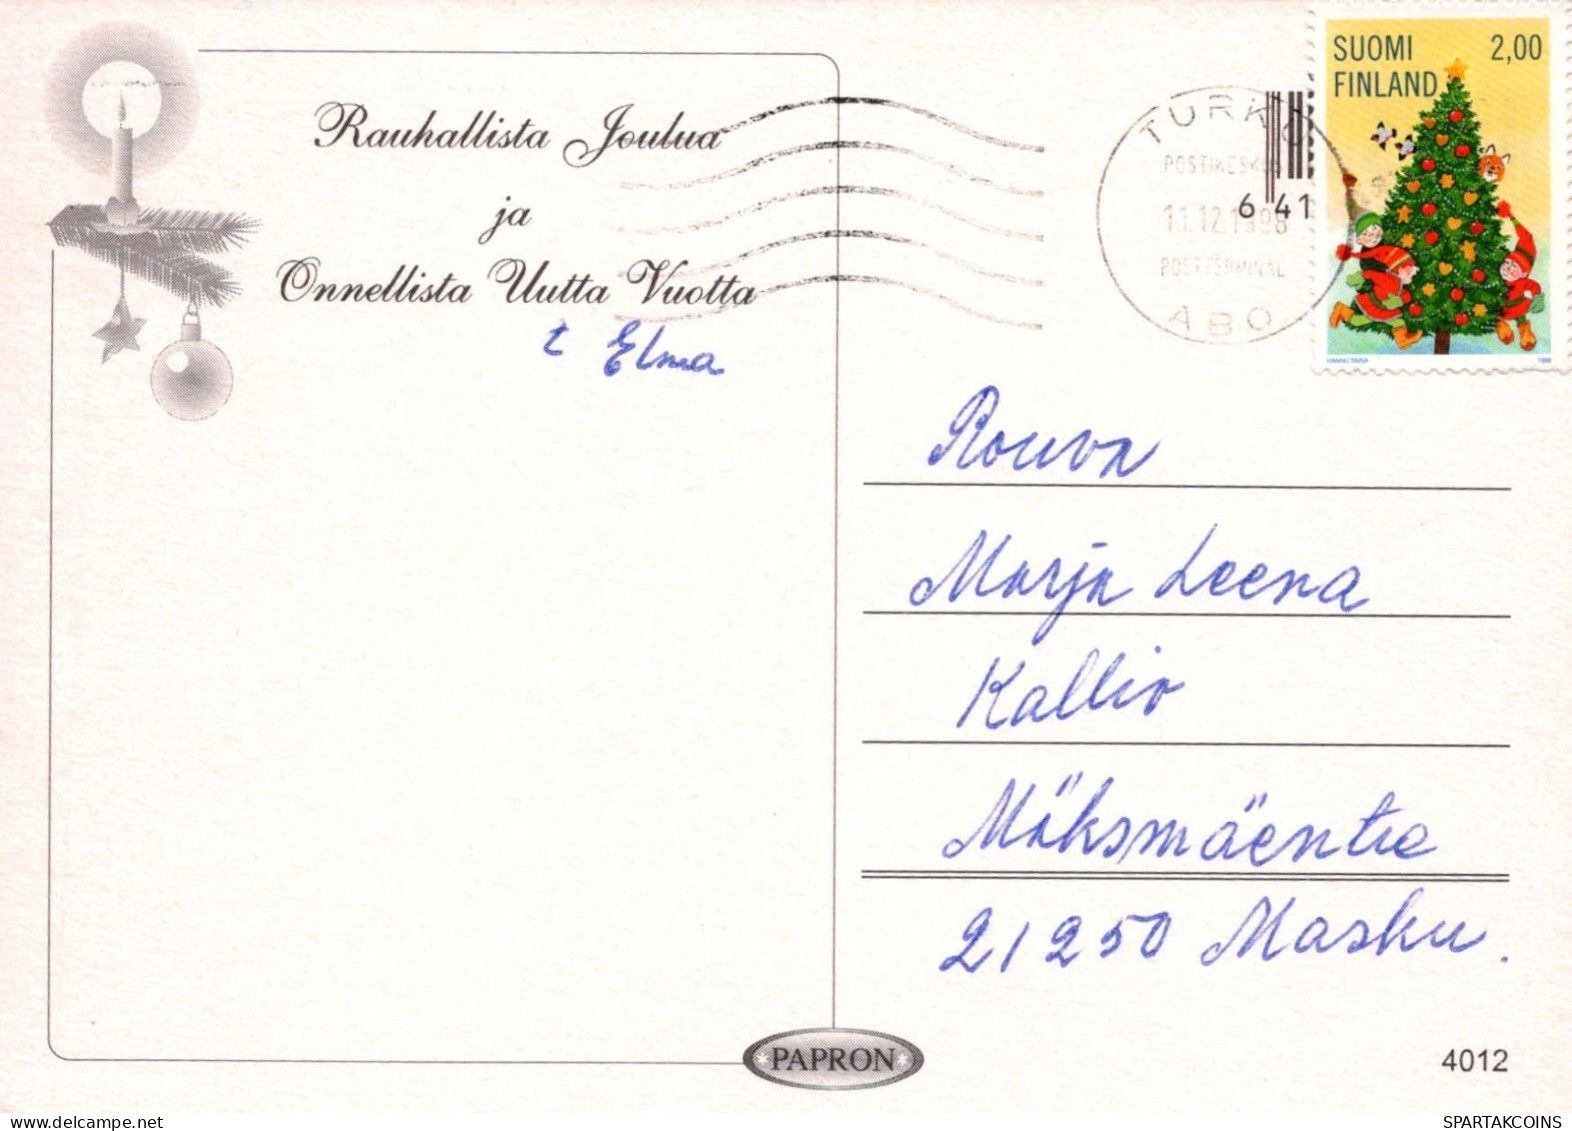 Rauhallista Joulua
ja
Onnellista Uutta Vuotta
t Elma
TURKU
POSTIKESKUS
11.12.1998
POSTTERMINAL
ÅBO
6 41
SUOMI 2,00
FINLAND
HANNU TAINA 1998
Rouva
Marja Leena
Kallio
Möksmäentie
21250 Masku.
PAPRON
4012
delcampe.net
SPARTAKCOINS